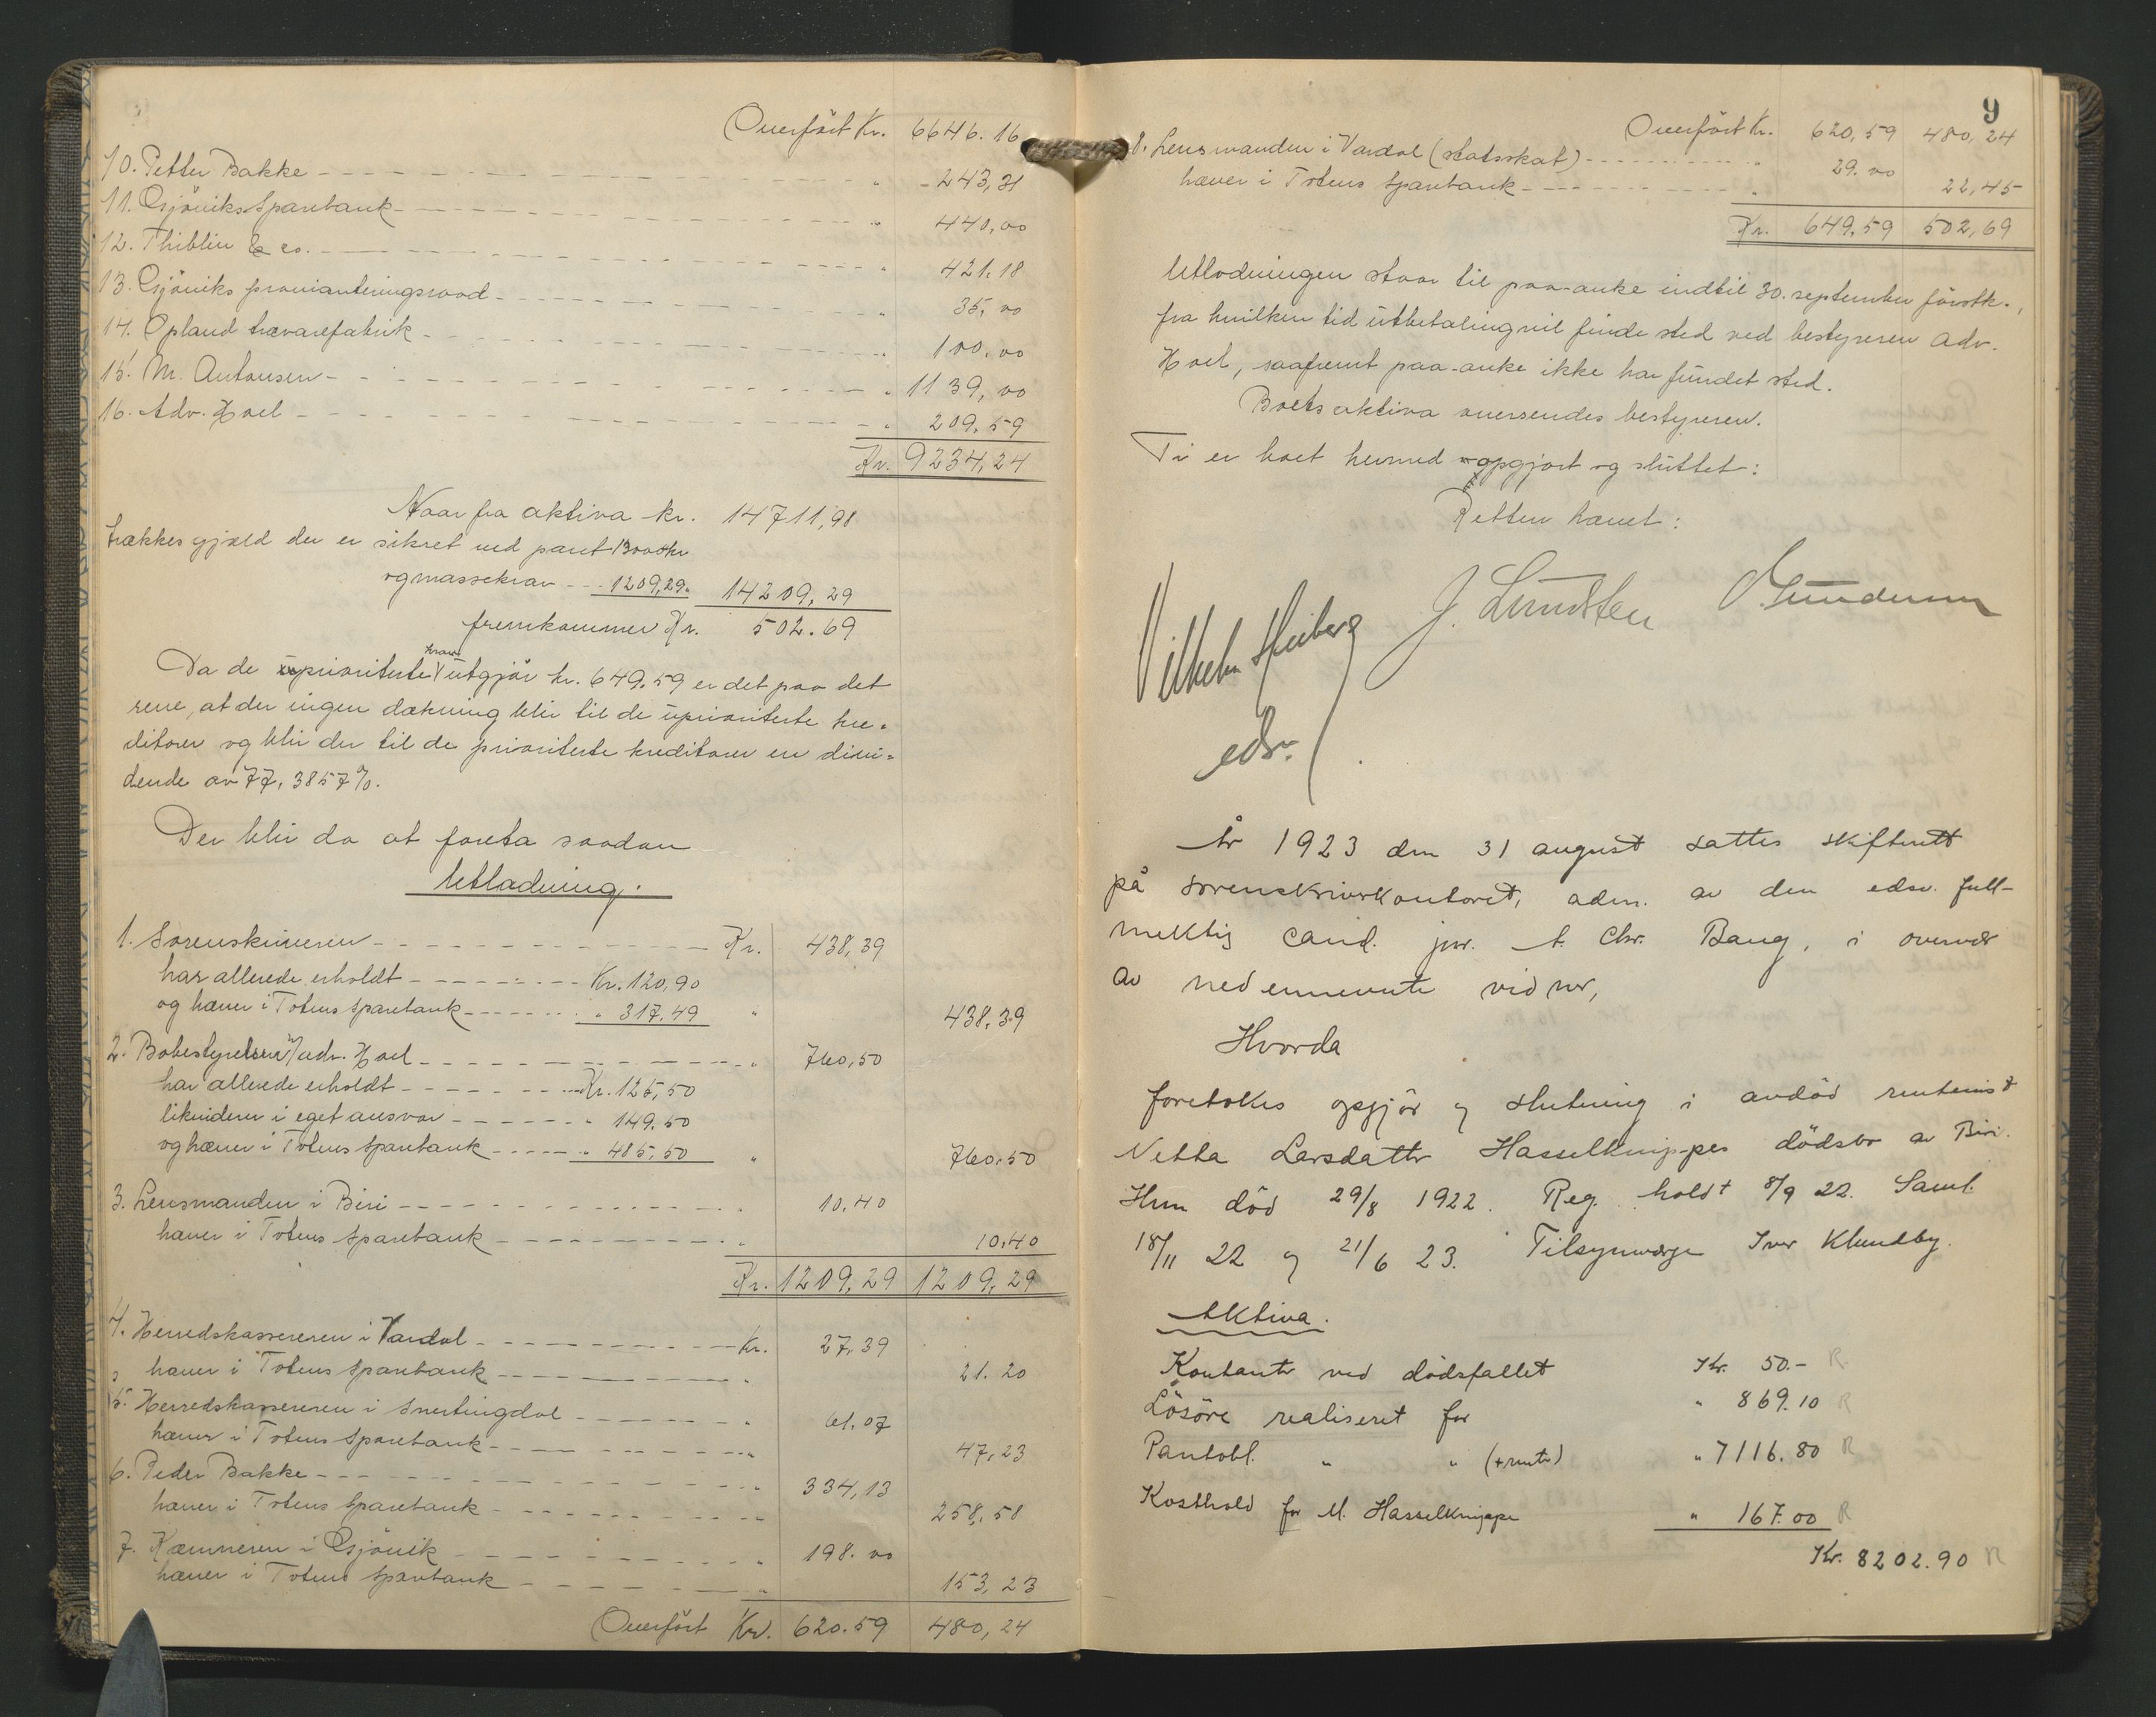 Overført Kr. 6646.16
10. Petter Bakke " 243,31
11. Gjøviks Sparebank " 440,00
12. Thiblin & co. " 421.18
13. Gjøviks provianteringsraad " 35,00
14. Opland trævarefabrik " 100,00
15. M. Antonsen " 1139,00
16. Adv. Hoel " 209,59
Kr. 9234,24
Naar fra aktiva kr. 14711,98
trækkes gjæld der er sikret ved pant 13000 kr
og massekrav 1209,29. 14209,29
fremkommer Kr. 502.69
Da de prioriterte krav utgjør kr. 649.59 er det paa det
rene, at der ingen dækning blir til de uprioriterte kre-
ditorer og blir der til de prioriterte kreditorer en divi-
dende av 77,3857%.
Der blir da at foreta saadan
Utlodning.
1. Sorenskriveren Kr. 438,39
har allerede erholdt Kr. 120,90
og hæver i Totens Sparebank " 317,49 " 438,39
2. Bobestyrelsen v/ adv. Hoel " 760,50
har allerede erholdt Kr. 125,50
likviderer i eget ansvar " 149,50
og hæver i Totens Sparebank " 485,50 " 760,50
3. Lensmanden i Biri " 10,40
hæver i Totens Sparebank " 10,40
Kr. 1209,29 1209,29
4. Herredskassereren i Vardal Kr. 27,39
hæver i Totens Sparebank " 21.20
5. Herredskassereren i Snertingdal " 61,07
hæver i Totens Sparebank " 47,23
6. Peder Bakke " 334,13
hæver i Totens Sparebank " 258,58
7. Kæmneren i Gjøvik " 198.00
hæver i Totens Sparebank " 153,23
Overført Kr. 620.59 480,24
9
Overført Kr. 620,59 480,24
8. Lensmanden i Vardal (statsskat) " 29.00
hæver i Totens Sparebank " 22,45
Kr. 649,59 502,69
Utlodningen staar til paa-anke indtil 30. september førstk.,
fra hvilken tid utbetaling vil finde sted ved bestyreren adv.
Hoel, saafremt paa-anke ikke har fundet sted.
Boets aktiva oversendes bestyreren.
Ti er boet hermed opgjort og sluttet:
Retten hævet:
Vilhelm Heiberg J. Lundsten
edsv.
År 1923 den 31 august sattes skifterett
på sorenskriverkontoret, adm. av den edsv. full-
mektig cand. jur. A. Chr. Bang, i overvær
av nedennevnte vidner,
Hvorda
foretokes opgjør og slutning i avdød rentenist
Netta Larsdatter Hasselknippes dødsbo av Biri.
Hun død 29/8 1922. Reg. holdt 8/9 22. Saml.
18/11 22 og 21/6 23. Tilsynsverge Iver Klundby.
Aktiva.
Kontanter ved dødsfallet Kr. 50.- R
Løsøre realiseret for " 869.10 R
Pantobl. " " (+ renter) " 7116.80 R
Kosthold for M. Hasselknippe " 167.00 R
Kr. 8202.90 R